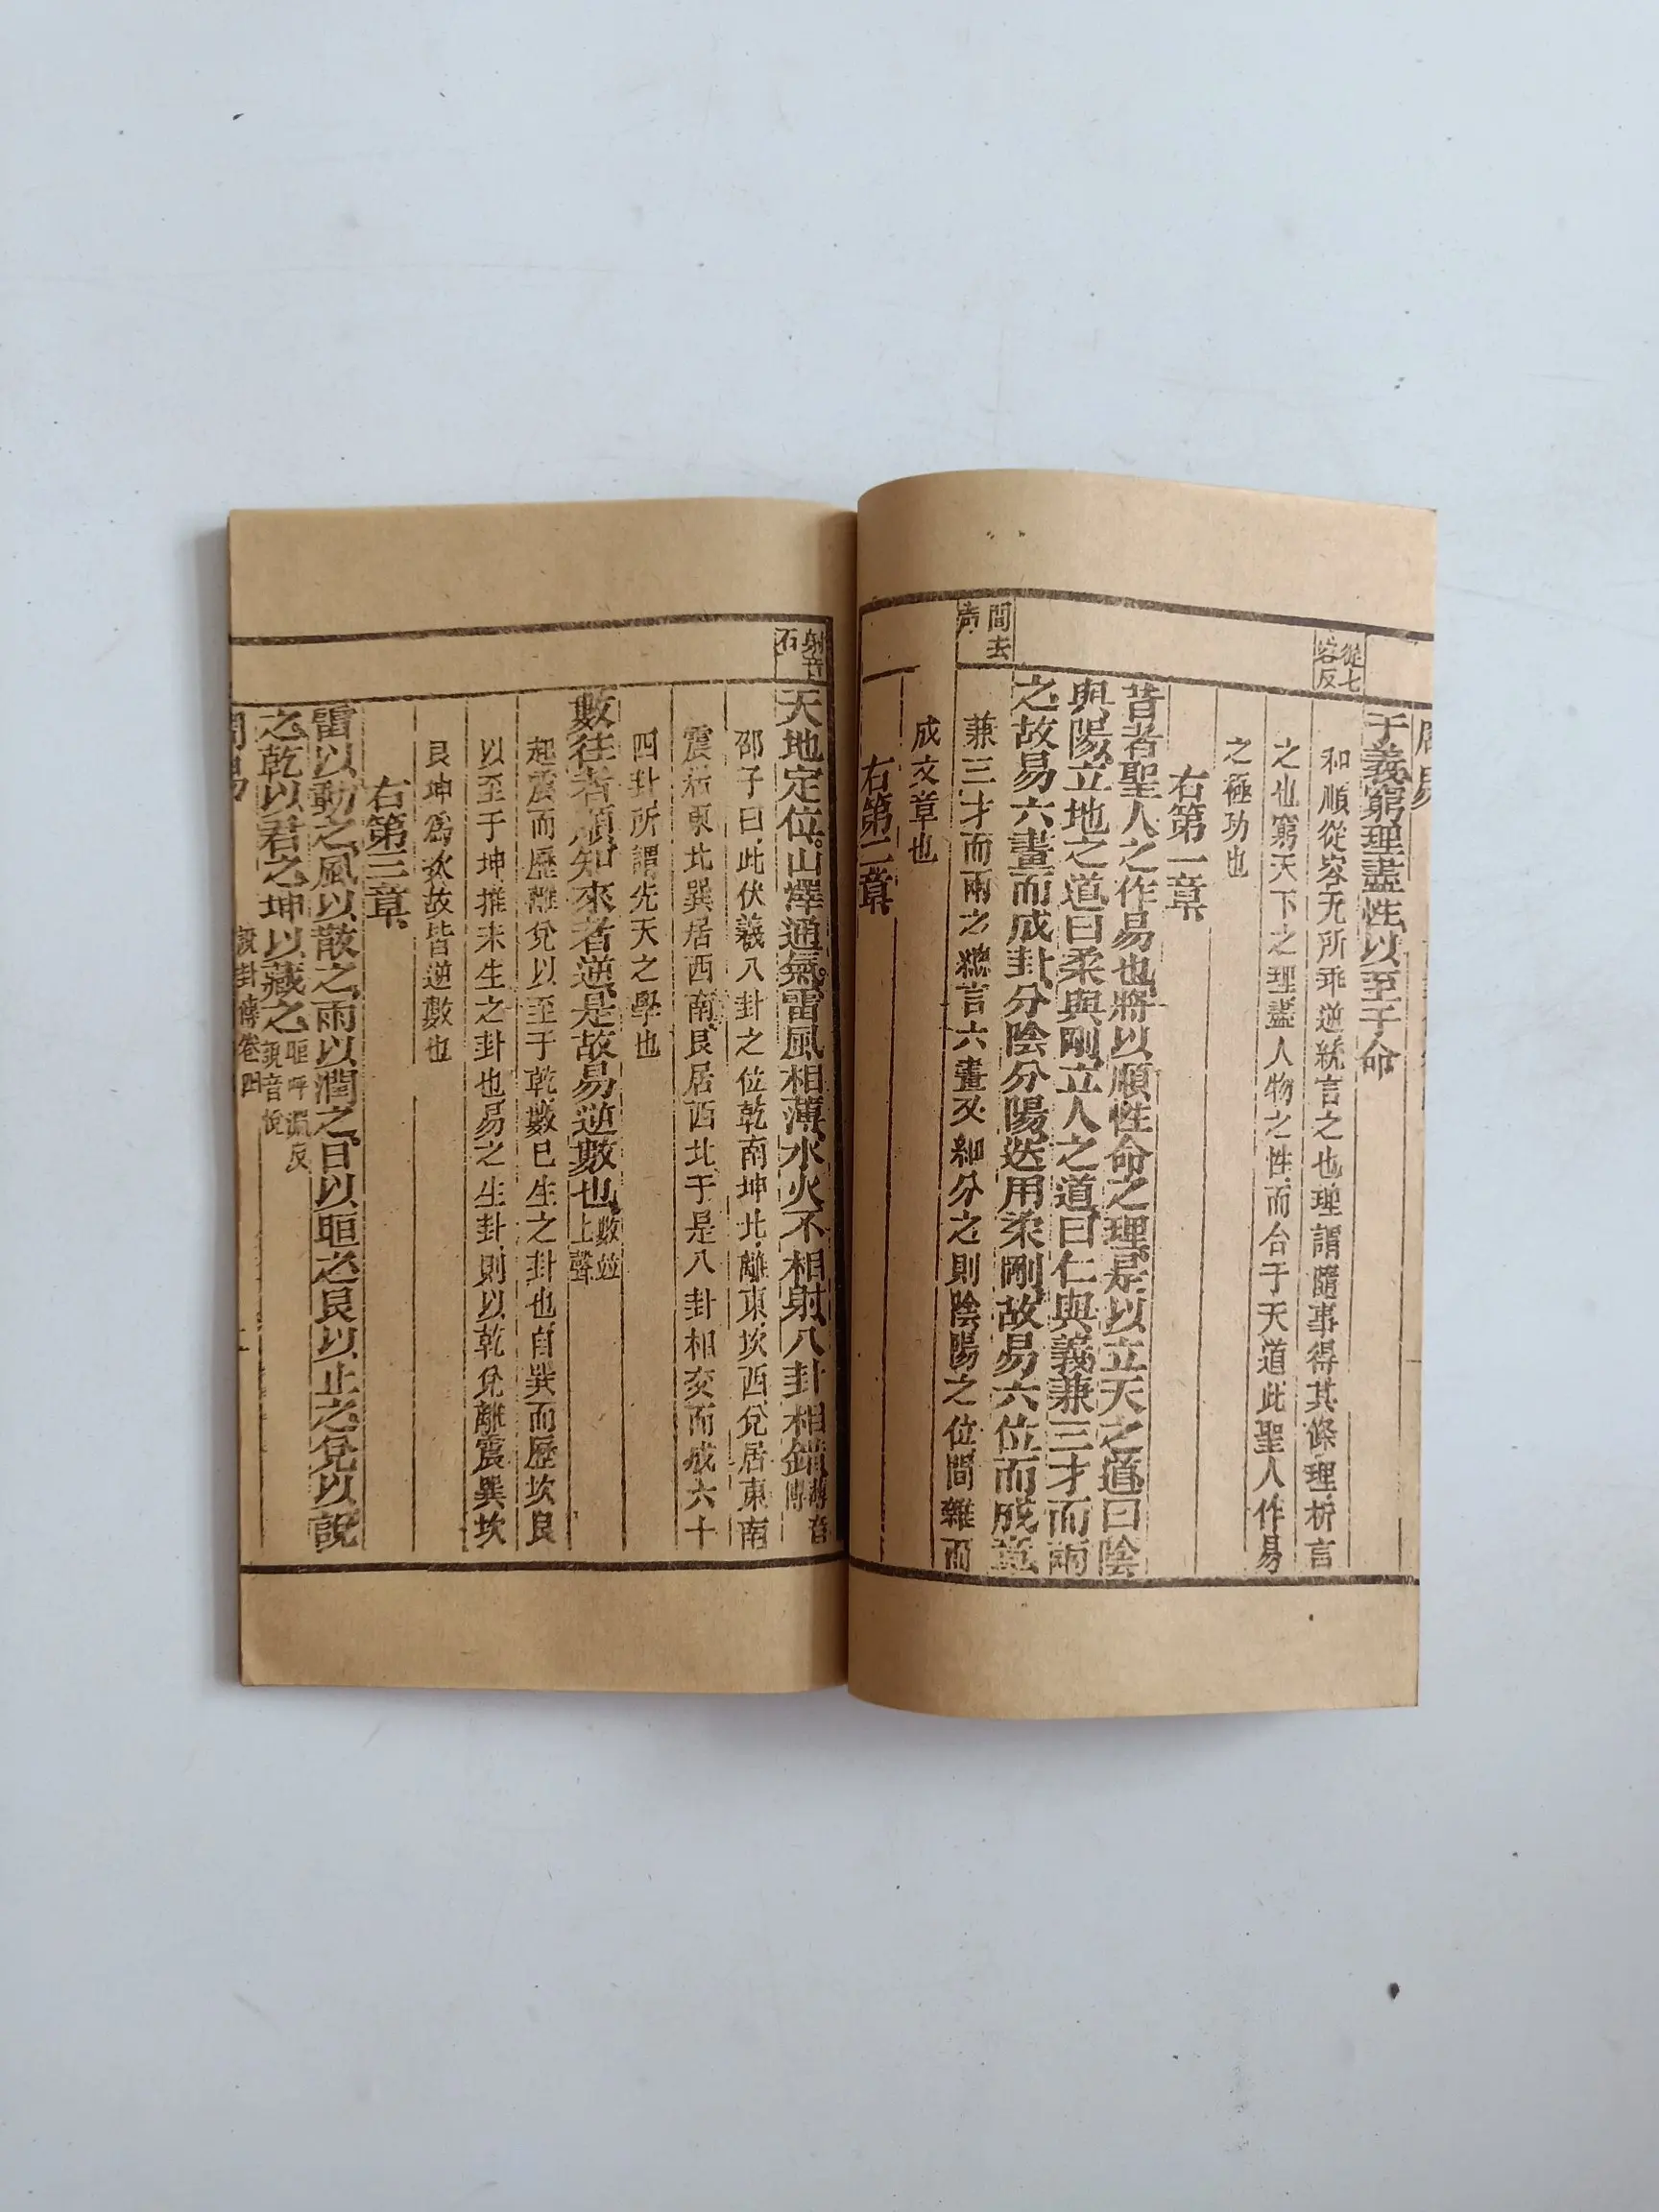 周易
從七
容反
于義窮理盡性以至于命
和順從容无所乖逆統言之也理謂隨事得其條理析言
之也窮天下之理盡人物之性而合于天道此聖人作易
之極功也
右第一章
昔者聖人之作易也將以順性命之理是以立天之道曰陰
與陽立地之道曰柔與剛立人之道曰仁與義兼三才而兩
之故易六畫而成卦分陰分陽迭用柔剛故易六位而成章
間去
声
兼三才而兩之總言六畫又細分之則陰陽之位間雜而
成文章也
右第二章
射音
石
天地定位。山澤通氣。雷風相薄水火不相射八卦相錯薄音
博
邵子曰此伏羲八卦之位乾南坤北離東坎西兌居東南
震居東北巽居西南艮居西北于是八卦相交而成六十
四卦所謂先天之學也
數往者順知來者逆是故易逆數也數並
上聲
起震而歷離兌以至于乾數已生之卦也自巽而歷坎艮
以至于坤推未生之卦也易之生卦則以乾兌離震巽坎
艮坤為次故皆逆數也
右第三章
雷以動之風以散之雨以潤之日以晅之艮以止之兌以說
之乾以君之坤以藏之晅呼淵反
說音悅
周易
說卦傳卷四
二